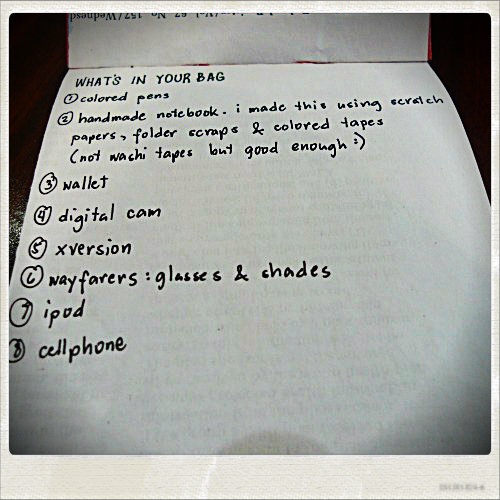 WHAT'S IN YOUR BAG
① colored pens
② handmade notebook. i made this using scratch
papers, folder scraps & colored tapes
(not washi tapes but good enough :)
③ wallet
④ digital cam
⑤ xversion
⑥ wayfarers : glasses & shades
⑦ ipod
⑧ cellphone